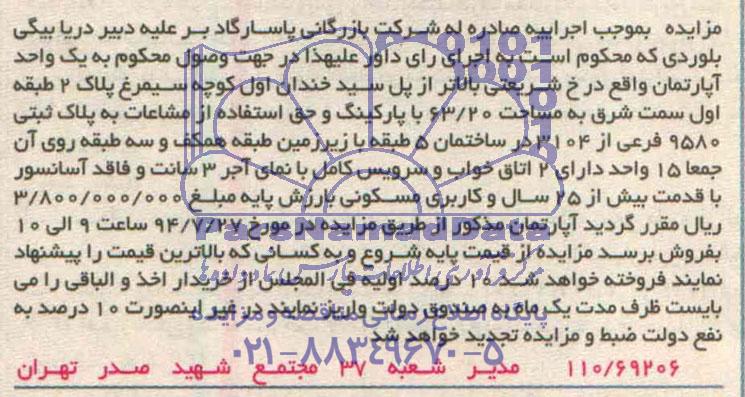 مزایده بموجب اجراییه صادره له شرکت بازرگانی پاسارگاد بر علیه دبیر دریا بیگی
بلوردی که محکوم است به اجرای رای داور علیهذا در جهت وصول محکوم به یک واحد
آپارتمان واقع در خ شریعتی بالاتر از پل سید خندان اول کوچه سیمرغ پلاک ۲ طبقه
اول سمت شرق به مساحت ۶۳/۲۰ با پارکینگ و حق استفاده از مشاعات به پلاک ثبتی
۹۵۸۰ فرعی از ۳۱۰۴ در ساختمان ۵ طبقه با زیرزمین طبقه همکف و سه طبقه روی آن
جمعا ۱۵ واحد دارای ۲ اتاق خواب و سرویس کامل با نمای آجر ۳ سانت و فاقد آسانسور
با قدمت بیش از ۲۵ سال و کاربری مسکونی باارزش پایه مبلغ ۳/۸۰۰/۰۰۰/۰۰۰
ریال مقرر گردید آپارتمان مذکور از طریق مزایده در مورخ ۹۴/۷/۲۷ ساعت ۹ الی ۱۰
بفروش برسد مزایده از قیمت پایه شروع و به کسانی که بالاترین قیمت را پیشنهاد
نمایند فروخته خواهد شد ۱۰ درصد اولیه فی المجلس از خریدار اخذ و الباقی را می
بایست ظرف مدت یک ماه به صندوق دولت واریز نمایند در غیر اینصورت ۱۰ درصد به
نفع دولت ضبط و مزایده تجدید خواهد شد
۱۱۰/۶۹۲۰۶ مدیر شعبه ۳۷ مجتمع شهید صدر تهران
ParsNamadData
پایگاه اطلاع رسانی مناقصه و مزایده
۰۲۱-۸۸۳۴۹۶۷۰-۵